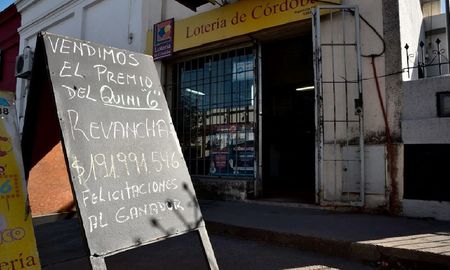 VENDIMOS
EL PREMIO
DEL QUINI "6"
REVANCHA
$191.991.546
FELICITACIONES
AL GANADOR
Lotería de Córdoba
Lotería